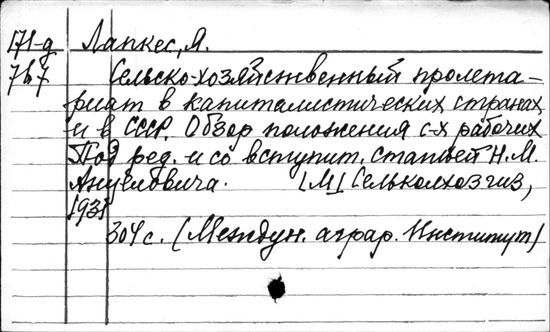 171-д Лапкес, Я.
7b7 Сельско-хозяйственный пролета-
риат в капиталистических странах
и в СССР. Обзор положения с-х рабочих
Под ред. и со вступит. статьей Н.М.
Анцеловича. [М] Сельколхозгиз,
1931
304 с. (Междун. аграр. Институт)